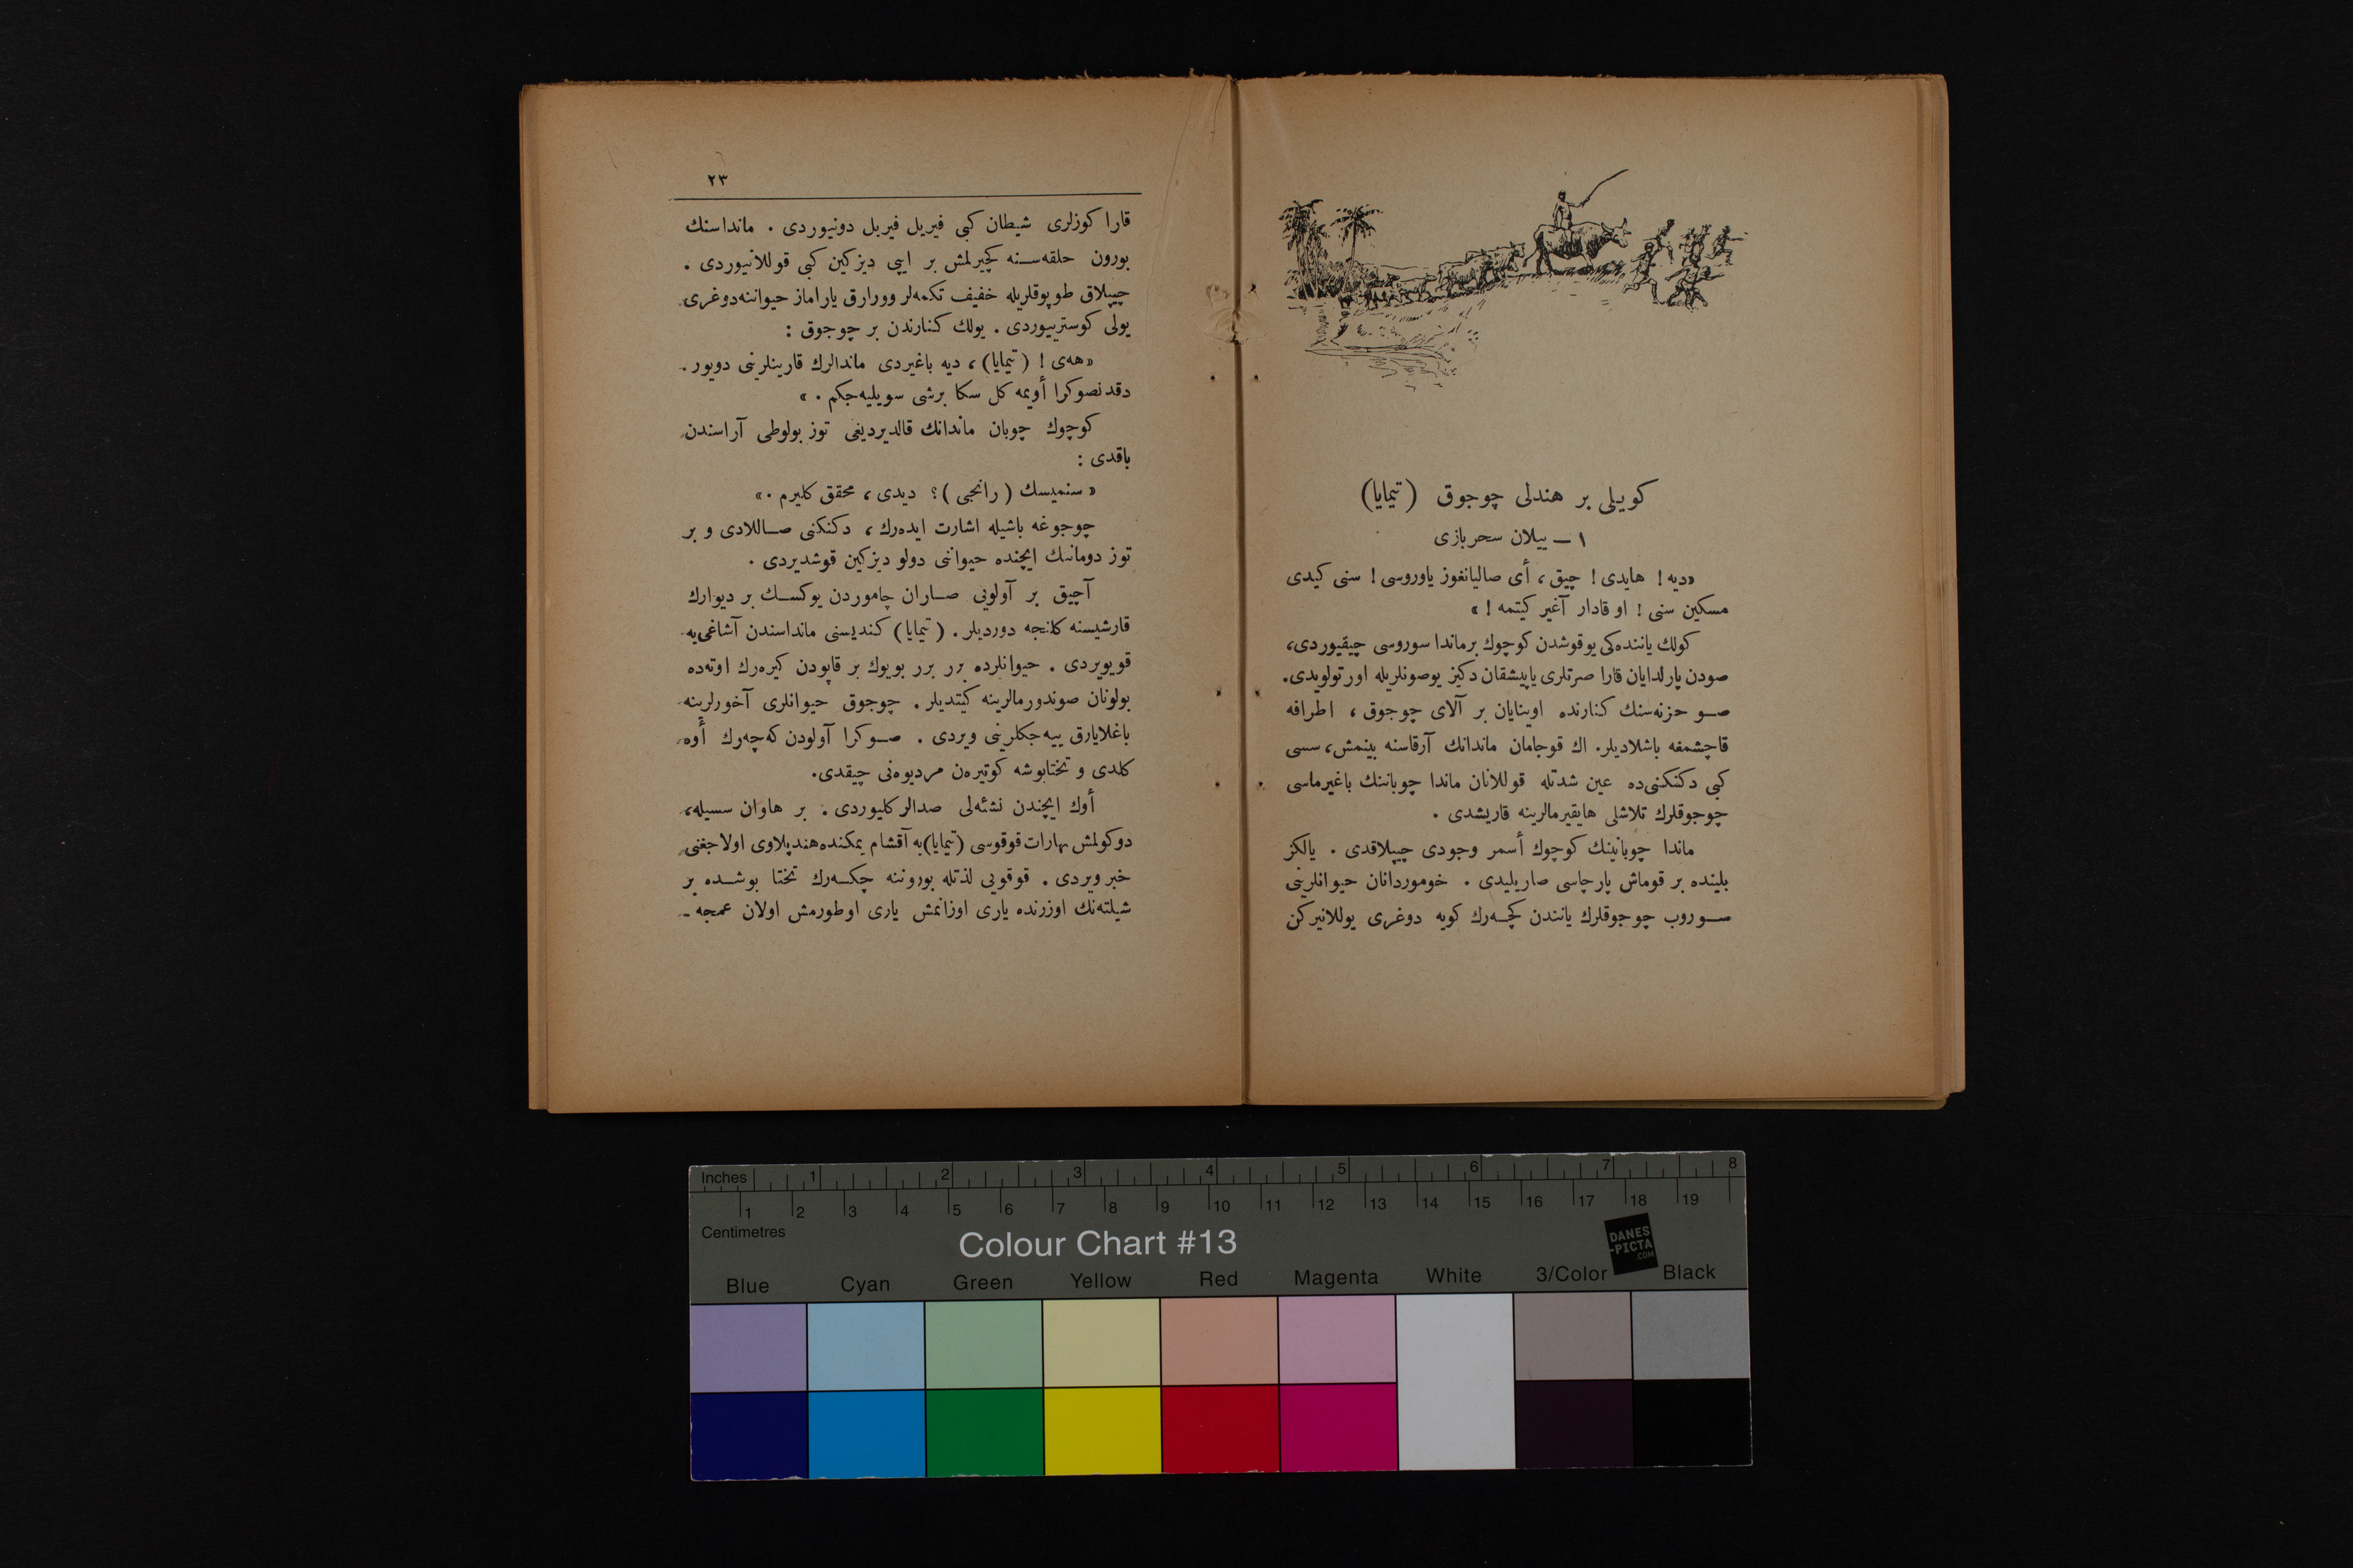 كويلى بر هندلى چوجوق (تيمايا)
١ — ييلان سحربازى
«ديه! هايدى! چيق، أى صاليانغوز ياوروسى! سنى كيدى
مسكين سنى! او قادار آغير كيتمه!»
كولك ياننده‌كى يوقوشدن كوچوك برماندا سوروسى چيقيوردى،
صودن پارلدايان قارا صرتلرى ياپيشقان دكيز يوصونلريله اورتولويدى.
صو حزنه‌سنك كنارنده اوينايان بر آلاى چوجوق، اطرافه
قاچشمغه باشلاديلر. اك قوجامان ماندانك آرقاسنه بينمش، سسى
كبى دكنكنى‌ده عين شدتله قوللانان ماندا چوباننك باغيرماسى
چوجوقلرك تلاشلى هايقيرمالرينه قاريشدى.
ماندا چوبانينك كوچوك أسمر وجودى چيپلاقدى. يالكز
بلينده بر قوماش پارچاسى صاريليدى. خوموردانان حيوانلرينى
سوروب چوجوقلرك ياننـدن كچه‌رك كويه دوغرى يوللانيركن
٢٣
قارا كوزلرى شيطان كبى فيريل فيريل دونيوردى. مانداسنك
بورون حلقه‌سنه كچيرلمش بر ايپى ديزكين كبى قوللانيوردى.
چيپلاق طوپوقلريله خفيف تكمه‌لر وورارق ياراماز حيواننه‌دوغرى
يولى كوسترييوردى. يولك كنارندن بر چوجوق:
«هه‌ى! (تيمايا)، ديه باغيردى ماندالرك قارينلرينى دويور.
دقدنصوكرا أويمه كل سكا برشى سويليه‌جكم.»
كوچوك چوبان ماندانك قالديرديغى توز بولوطى آراسندن
باقدى:
«سنميسك (رانجى)؟ ديدى، محقق كليرم.»
چوجوغه باشيله اشارت ايده‌رك، دكنكنى صاللادى و بر
توز دومانك ايچنده حيواننى دولو ديزكين قوشديردى.
آچيق بر آولويى صاران چاموردن يوكسك بر ديوارك
قارشيسنه كلنجه دورديلر. (تيمايا) كنديسنى مانداسندن آشاغى‌يه
قويويردى. حيوانلرده برر برر بويوك بر قاپودن كيره‌رك اوته‌ده
بولونان صوندورمالرينه كيتديلر. چوجوق حيوانلرى آخورلرينه
باغلايارق ييه‌جكلرينى ويردى. صوكرا آولودن كه‌چه‌رك أوه
كلدى و تختابوشه كوتيره‌ن مرديوه‌نى چيقدى.
أوك ايچندن نشئه‌لى صدالر كليوردى. بر هاوان سسيله،
دوكولمش بهارات قوقوسى (تيمايا)يه آقشام يمكنده هندپلاوى اولاجغنى
خبر ويردى. قوقويى لذتله بورونه چكه‌رك تختا بوشده بر
شيلته‌نك اوزرنده يارى اوزانمش يارى اوطورمش اولان عمجه-
Inches 1 2 3 4 5 6 7 8
1 2 3 4 5 6 7 8 9 10 11 12 13 14 15 16 17 18 19
Centimetres
Colour Chart #13
DANES
-PICTA
.COM
Blue Cyan Green Yellow Red Magenta White 3/Color Black